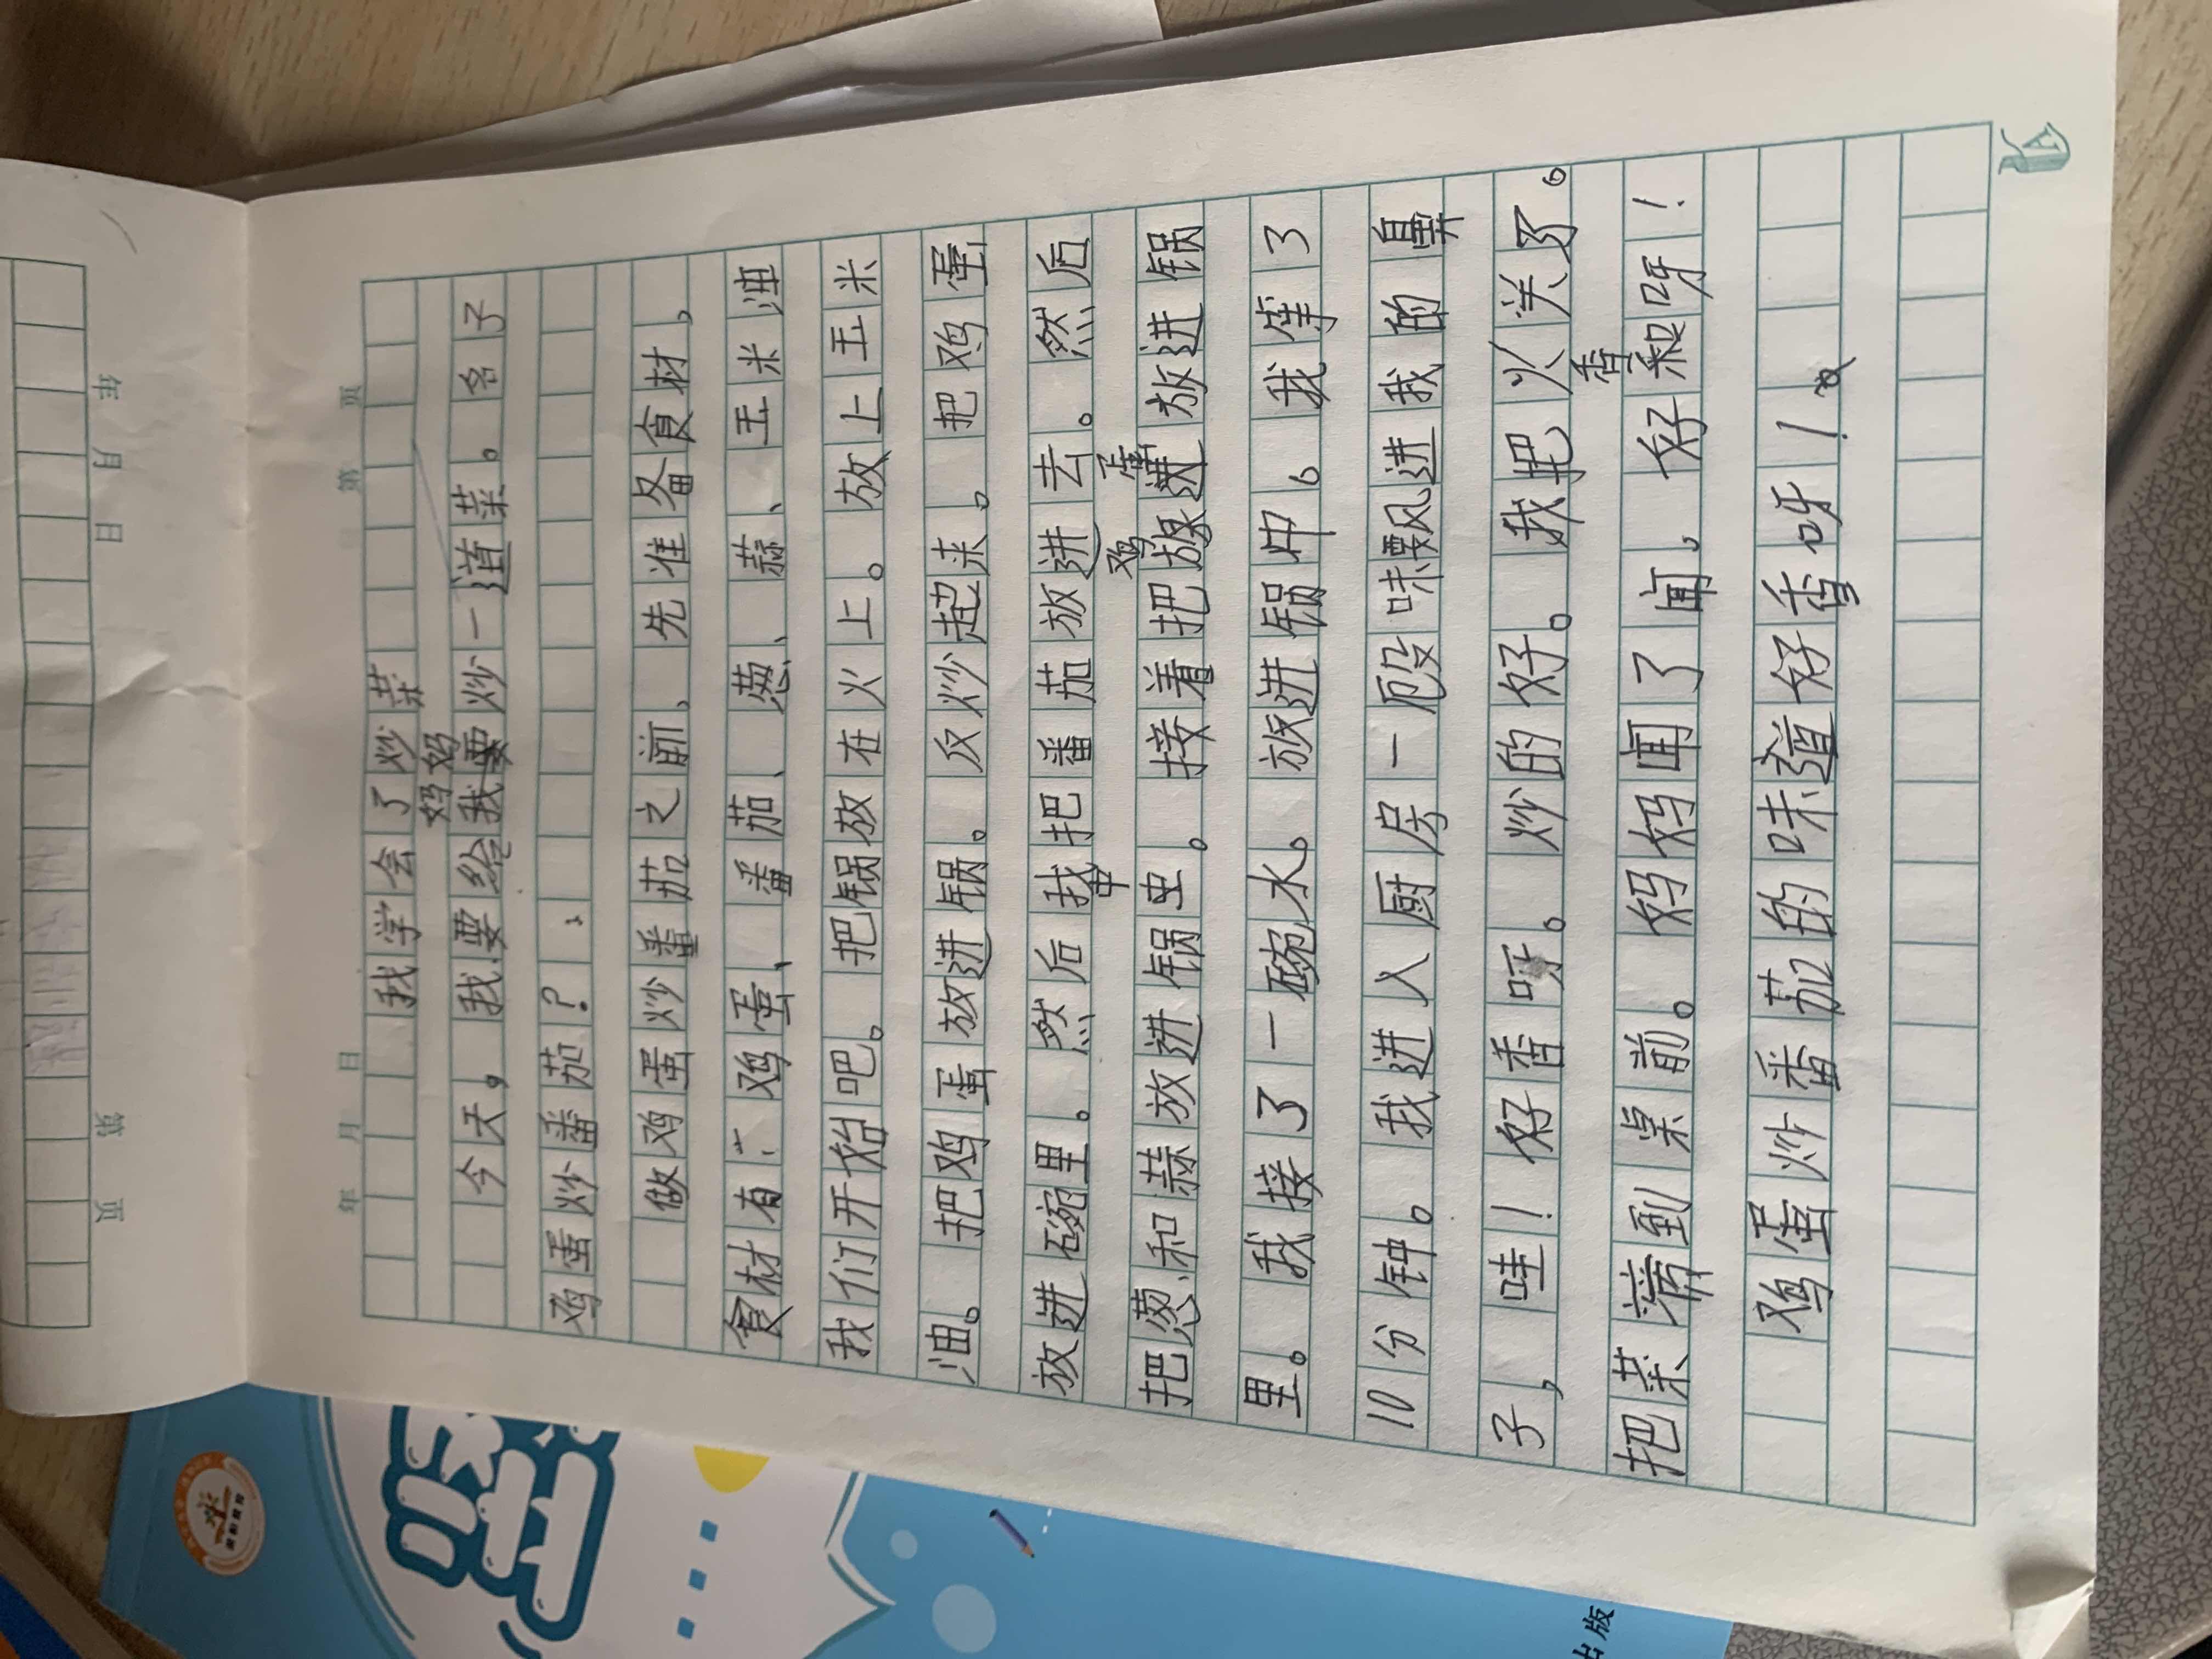 年 月 日 第 页
我学会了炒菜
妈妈
今天，我要给我要炒一道菜。名子
鸡蛋炒番茄？、
做鸡蛋炒番茄之前、先准备食材，
食材有：鸡蛋、番茄、葱、蒜、玉米油
我们开始吧。把锅放在火上。放上玉米
油。把鸡蛋放进锅。反炒起来。把鸡蛋
放进碗里。然后我把番茄放进去。然后
中 鸡蛋
把葱和蒜放进锅虫。接着把放进放进锅
里。我接了一碗水。放进锅中。我等了
10分钟。我进入厨房一股味飘进我的鼻
子，哇！好香呀。炒的好。我把火关了。
香
把菜端到桌前。妈妈闻了闻，好和呀！
鸡蛋炒番茄的味道好香呀！
年 月 日
第 页
出版